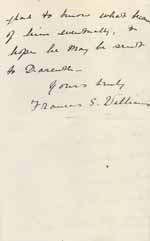 glad to know what
of him eventually, &
hope he may be sent
to
Yours truly
Frances E. Williams